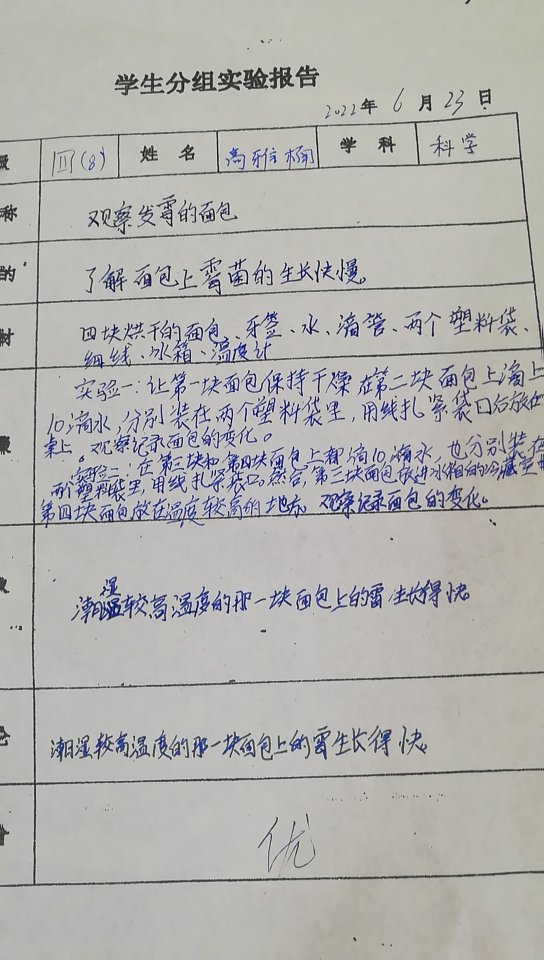 学生分组实验报告
2022年 6 月 23 日
四(8) 姓名 高雅楠 学科 科学
称 观察发霉的面包
的 了解面包上霉菌的生长快慢。
材 四块烘干的面包、牙签、水、滴管、两个塑料袋、
细线、冰箱、温度计
实验一:让第一块面包保持干燥 在第二块面包上滴上
骤 10滴水,分别装在两个塑料袋里,用线扎紧袋口后放在
桌上。观察记录面包的变化。
实验二:在第三块和第四块面包上都滴10滴水,也分别装在
两个塑料袋里,用线扎紧袋口。然后,第三块面包放进冰箱的冷藏室
第四块面包放在温度较高的地方。观察记录面包的变化。
湿
潮 较高温度的那一块面包上的霉生长得快。
论 潮湿较高温度的那一块面包上的霉生长得快。
价 优